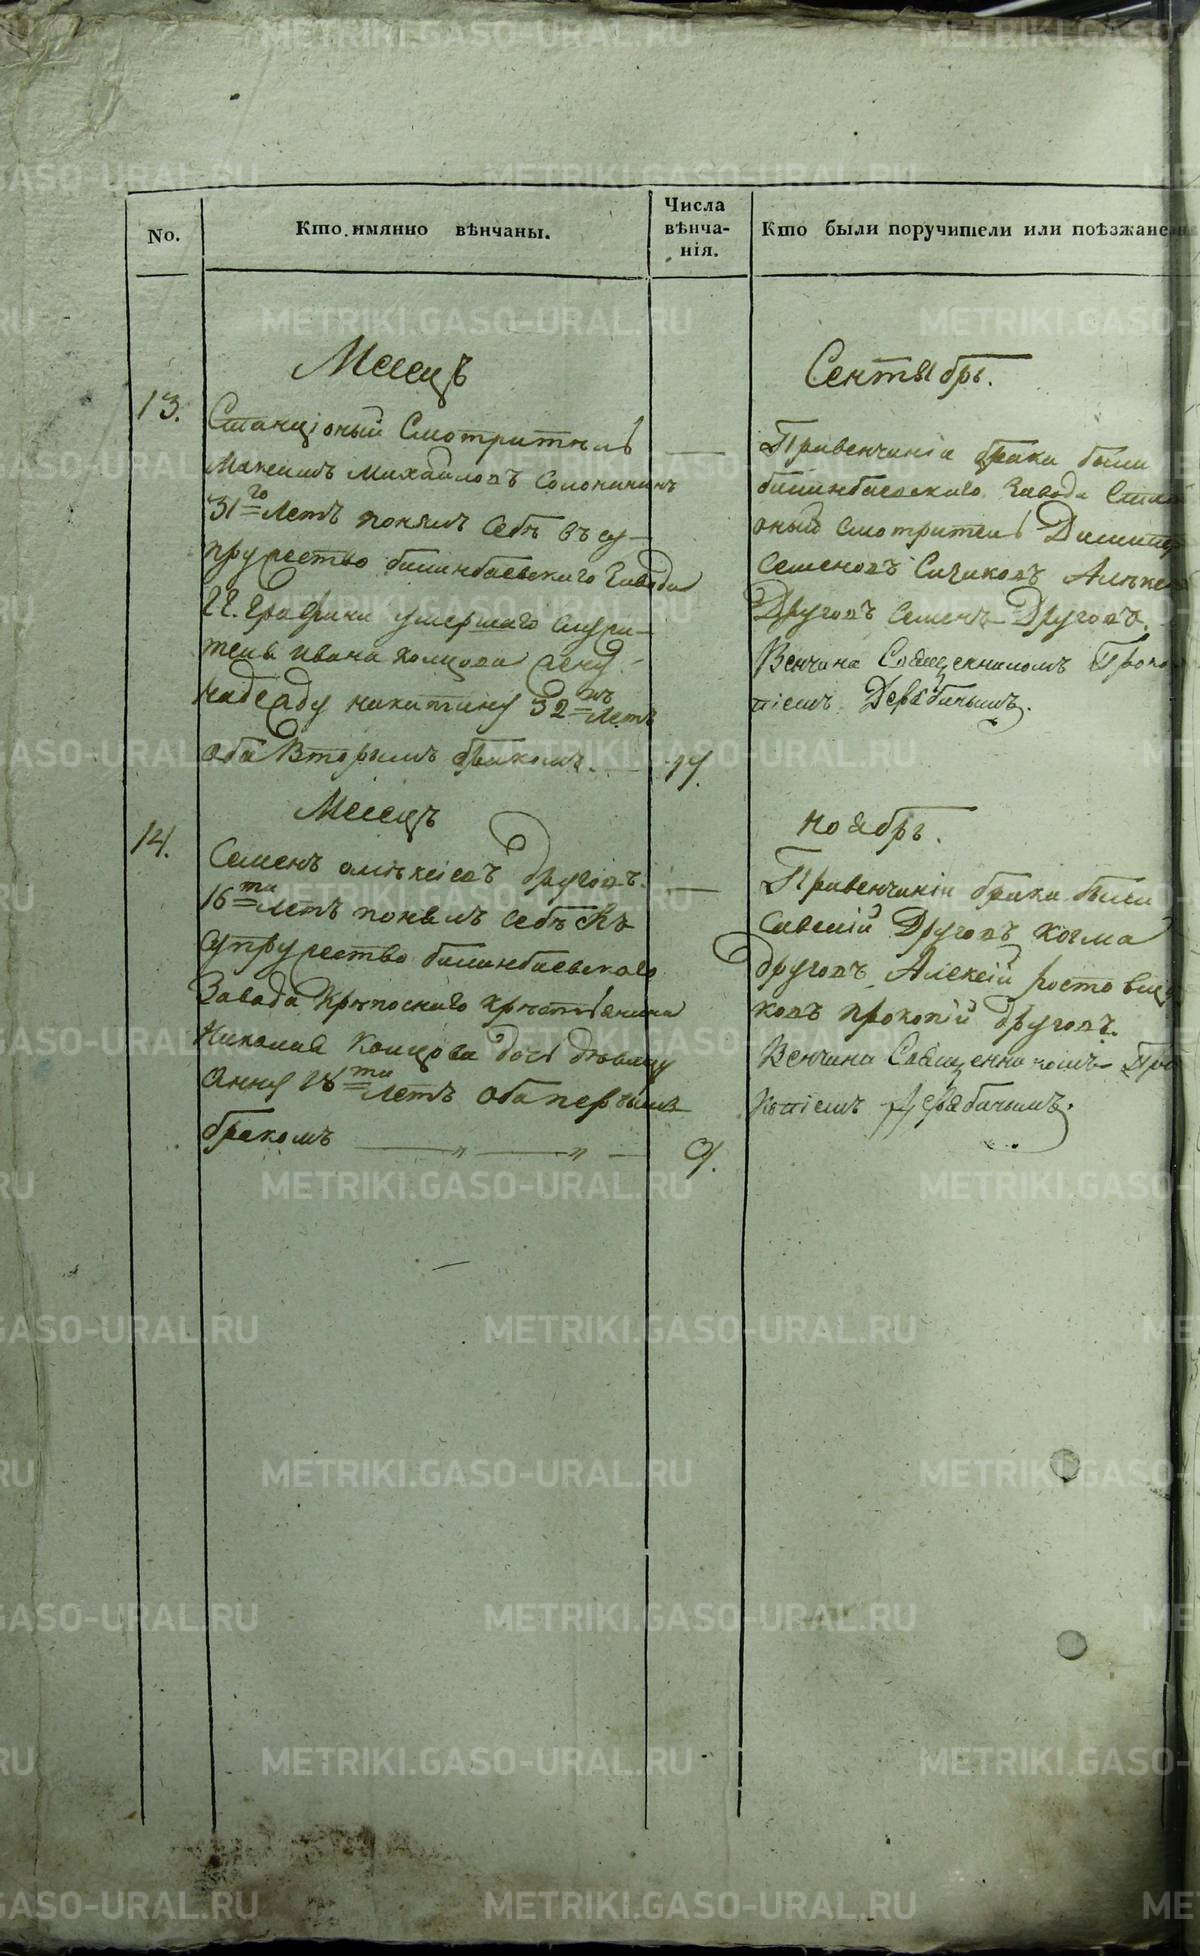 No.
Кто имянно вѣнчаны.
Числа
вѣнча-
нія.
Кто были поручители или поѣзжане
Месецъ
Сентябрь.
13.
Станціоный Смотритель
Михайловъ Солонининъ
31го Летъ понялъ Себѣ въ су-
пружество билинбаевскаго Завода
Графини умершаго служи-
теля ивана колцова жену
надежду никитину 32хъ Летъ
оба вторымъ бракомъ.
Привенчаніи брака были
билинбаевскаго Завода
оный смотритель
Семеновъ
Друговъ Семенъ Друговъ.
Венчана Священникомъ Проко
піемъ Дерябинымъ.
Месецъ
Ноябрь.
14.
Семенъ алѣксіевъ друговъ.
16ти Летъ понялъ себѣ въ
супружество билинбаевскаго
Завода Крѣпоснаго крѣстьянина
Николая Колцова дочь дѣвицу
Анну 18ти Летъ оба первымъ
бракомъ
9.
Привенчаніи брака были
савелій Друговъ козма
друговъ Алексій ростовщи
ковъ прокопій друговъ.
Венчана Священникомъ Про
копіемъ Дерябинымъ.
METRIKI.GASO-URAL.RU